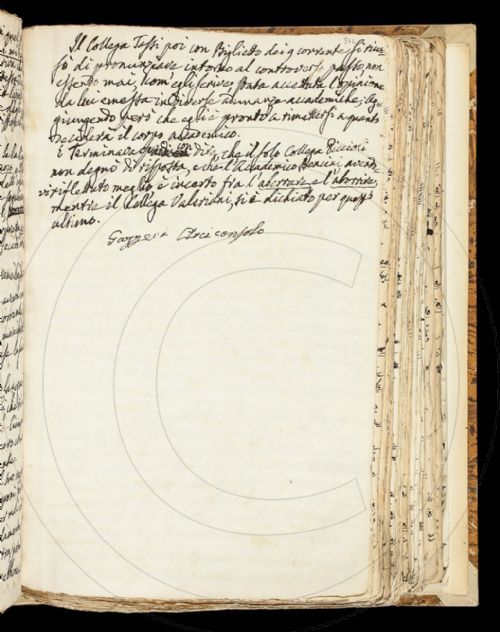 Il Collega Tassi poi con Biglietto dei 9 corrente si ricu-
sò di pronunziare intorno al controverso passo, non
essendo mai, com'egli scrive, stata accettata l'opinione
da lui emessa in diverse adunanze accademiche; ag-
giungendo però che egli è pronto a rimettersi a quanto
decederà il corpo accademico.
E Terminava con dire, che il solo Collega Piccioli
non degnò di risposta, e che l'Accademico Bencini avendo
vi riflettuto meglio è incerto fra l'aberrare, e l'aborrire,
mentre il Collega Valeriani, si è dichiato per quest'
ultimo.
Gazzeri Arciconsolo